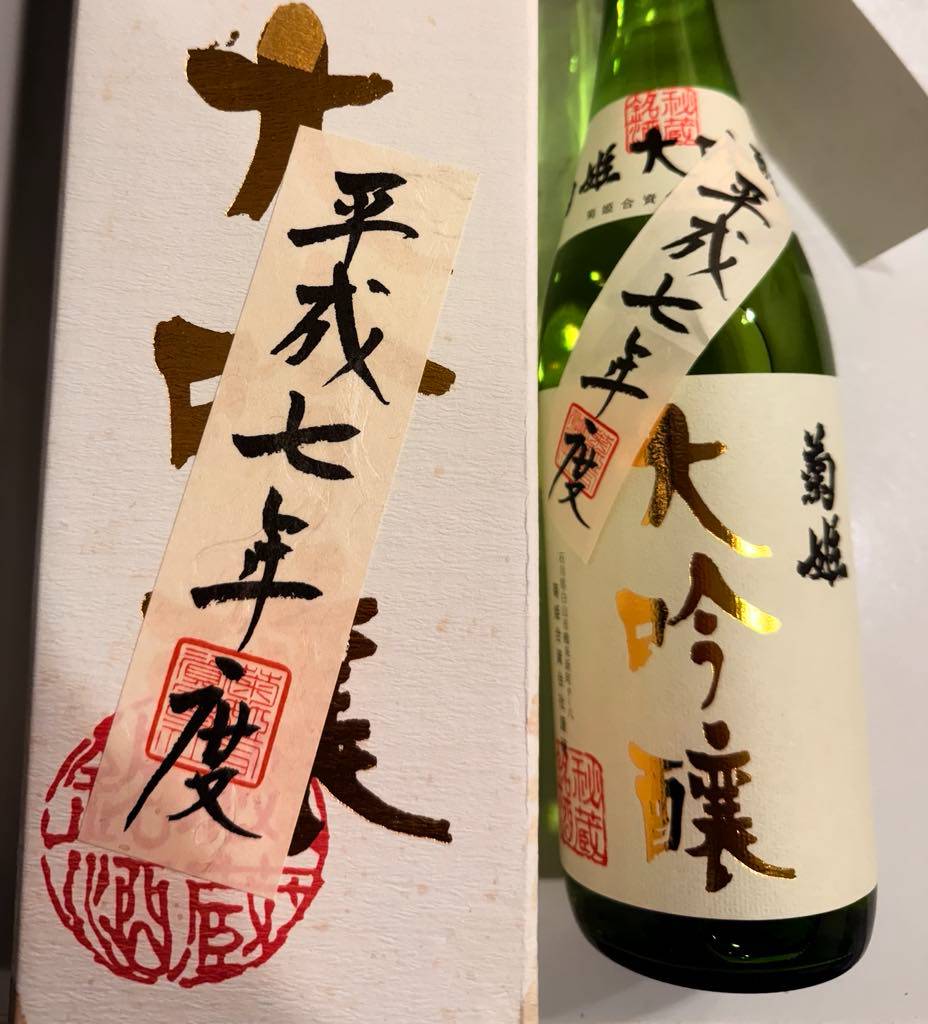 大吟醸
平成七年度
秘蔵
銘酒
菊姫 大吟醸
菊姫合資
平成七年度
菊姫
大吟醸
秘蔵
銘酒